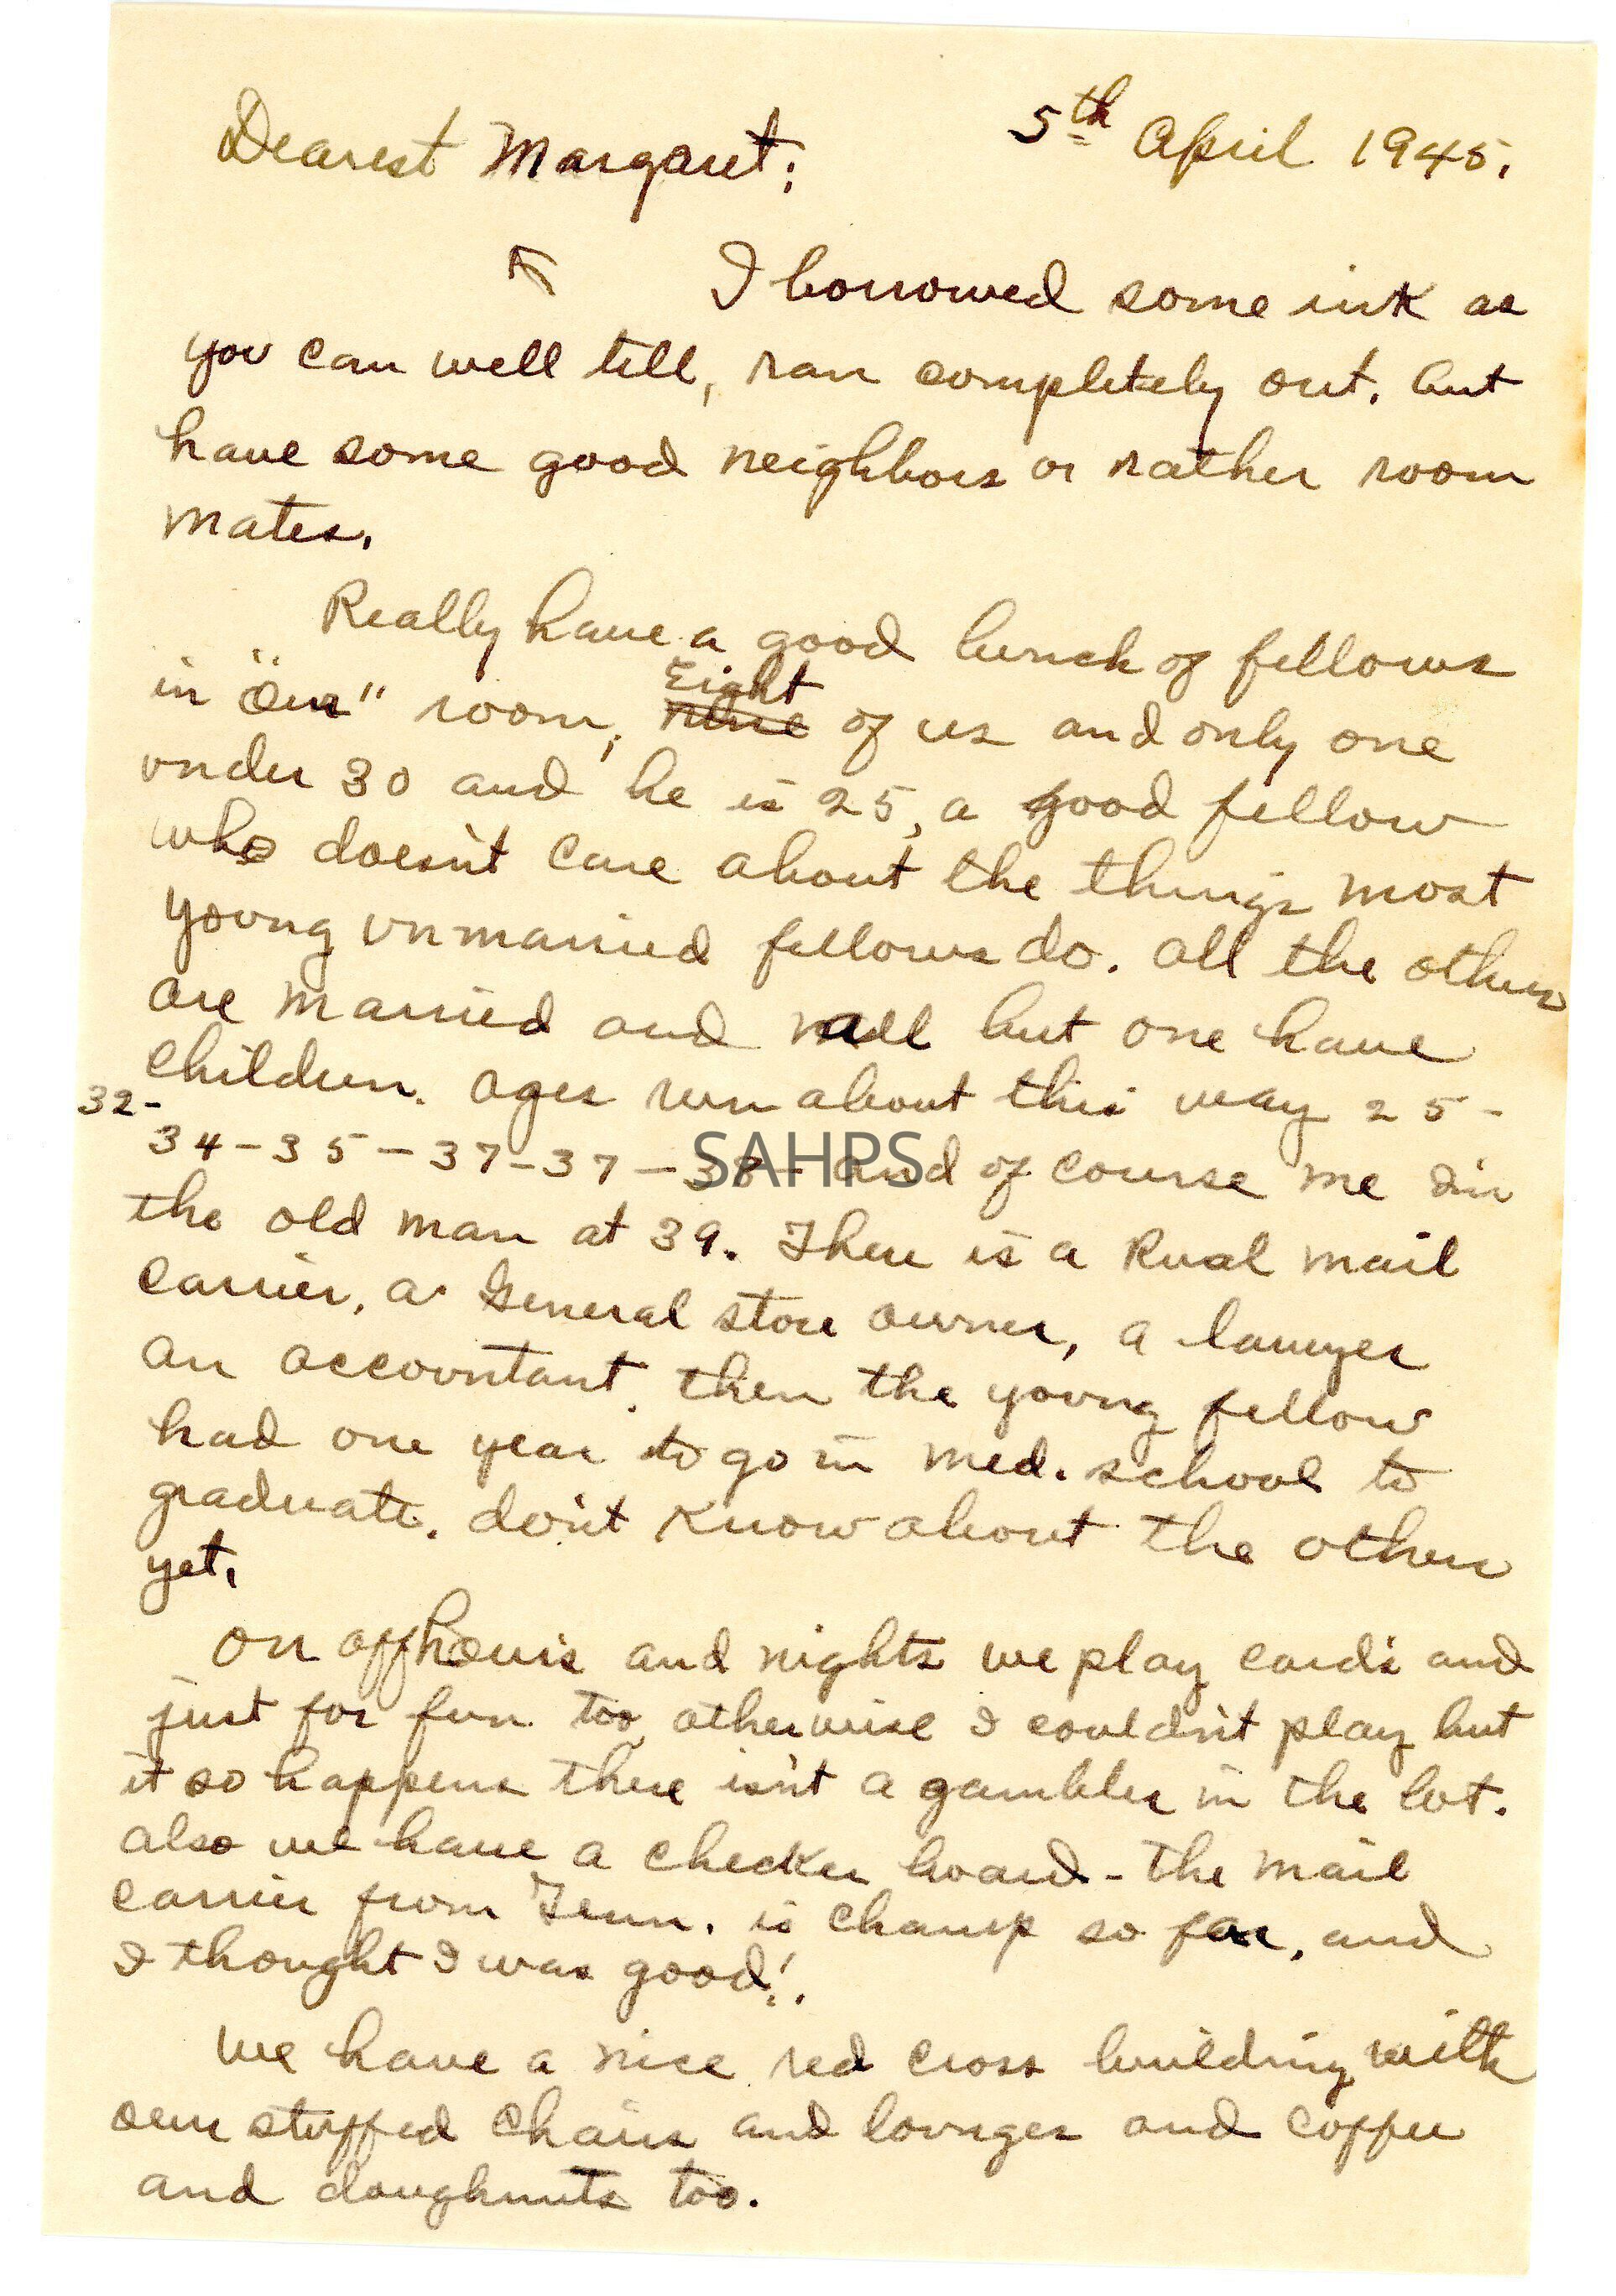 5th April 1945.
Dearest Margaret:
I borrowed some ink as
you can well till, ran completely out. but
have some good neighbors or rather room
mates.
Really have a good bunch of fellows
in "Our" room, Eight
nine of us and only one
under 30 and he is 25, a good fellow
who doesn't care about the things most
young unmarried fellows do. all the others
are married and all but one have
children. ages run about this way 25-
32-
34-35-37-37-38- and of course me I'm
the old man at 39. There is a Rual mail
carrier, a General store owner, a lawyer
an accountant. then the young fellow
had one year to go in med. school to
graduate. don't know about the others
yet.
on off hours and nights we play cards and
just for fun too otherwise I couldn't play but
it so happens there isn't a gambler in the lot.
also we have a checker board - the mail
carrier from Tenn. is champ so far, and
I thought I was good!.
We have a nice red cross building with
over stuffed chairs and lounges and coffee
and doughnuts too.
SAHPS